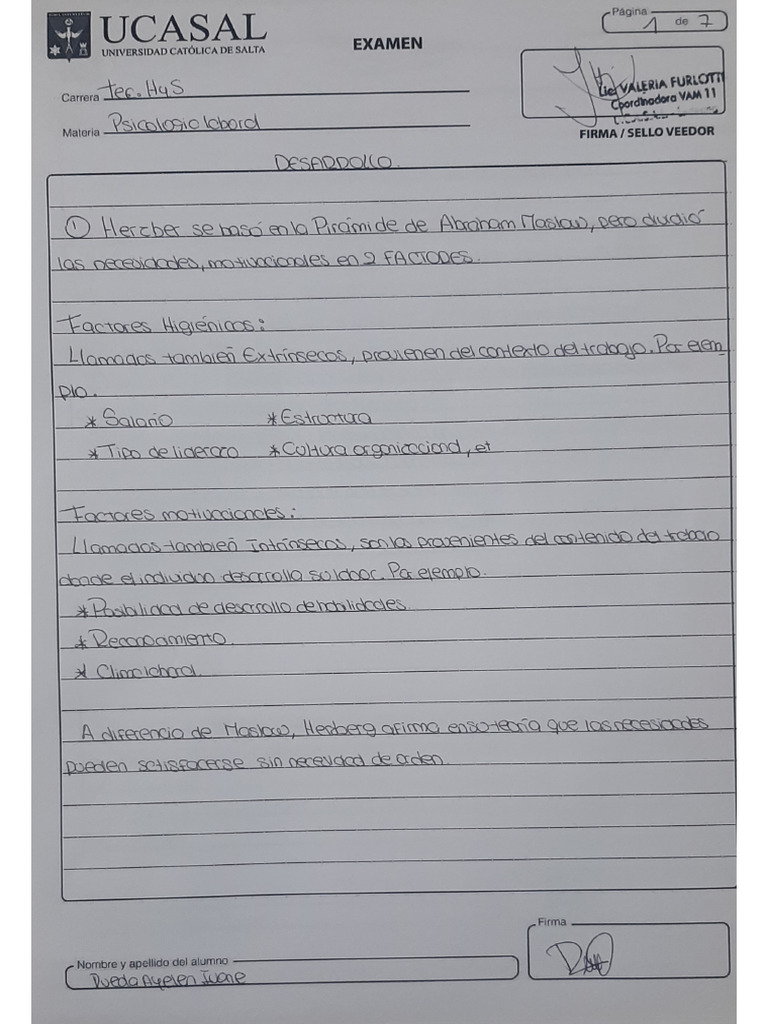 UCASAL
UNIVERSIDAD CATÓLICA DE SALTA
EXAMEN
Página 1 de 7
Carrera Tec. HyS
Lic. VALERIA FURLOTTI
Coordinadora VAM 11
Materia Psicologia laboral
FIRMA / SELLO VEEDOR
DESARROLLO.
① Hercber se basó en la Pirámide de Abraham Maslow, pero dividió
las necesidades, motivacionales en 2 FACTORES.
Factores Higiénicos:
Llamados también Extrínsecos, provienen del contexto del trabajo. Por ejem-
plo.
* Salario * Estructura
* Tipo de liderazo * Cultura organizacional, et
Factores motivacionales:
Llamados también Intrínsecos, son los provenientes del contenido del trabajo
donde el individuo desarrolla su labor. Por ejemplo.
* Posibilidad de desarrollo de habilidades
* Reconocimiento.
* Clima laboral.
A diferencia de Maslow, Herzberg afirma en su teoría que las necesidades
pueden satisfacerse sin necesidad de orden.
Firma
Nombre y apellido del alumno
Rueda Ayelen